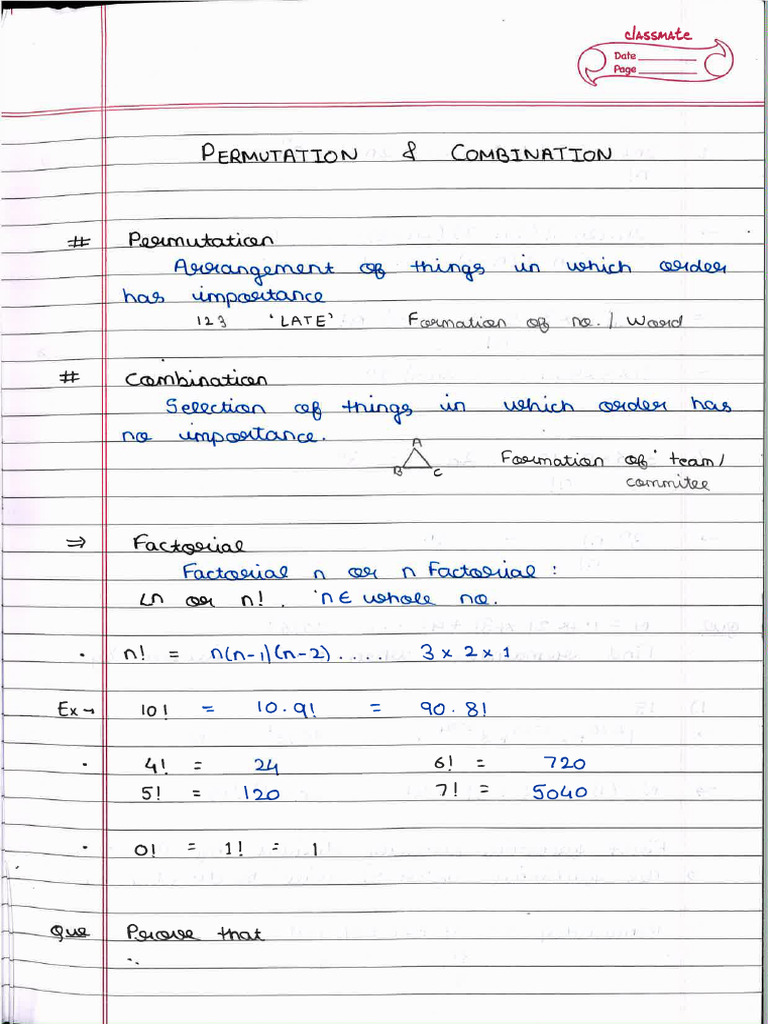 classmate
Date
Page
PERMUTATION & COMBINATION
# Permutation
Arrangement of things in which order
has importance
123 'LATE' Formation of no. / Word
# Combination
Selection of things in which order has
no importance.
A
B C
Formation of team/
commitee
⇒ Factorial
Factorial n or n Factorial :
∟n or n! . n ∈ whole no.
· n! = n(n-1)(n-2) .... 3 × 2 × 1
Ex → 10! = 10.9! = 90.8!
· 4! = 24 6! = 720
5! = 120 7! = 5040
· 0! = 1! = 1
Que Prove that